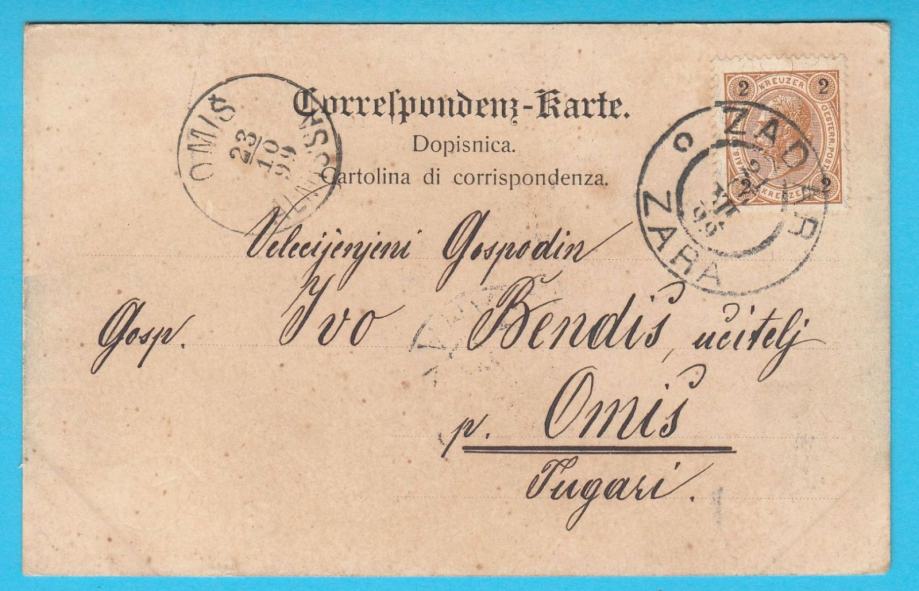 Correſpondenz-Karte.
Dopisnica.
Cartolina di corrispondenza.
OMIŠ
23/10
99
2 KREUZER 2
OESTERR. POST
2 KREUZER 2
ZADAR
ZARA
Velecijenjeni Gospodin
Gosp. Ivo Bendiš, učitelj
p. Omiš
Tugari.